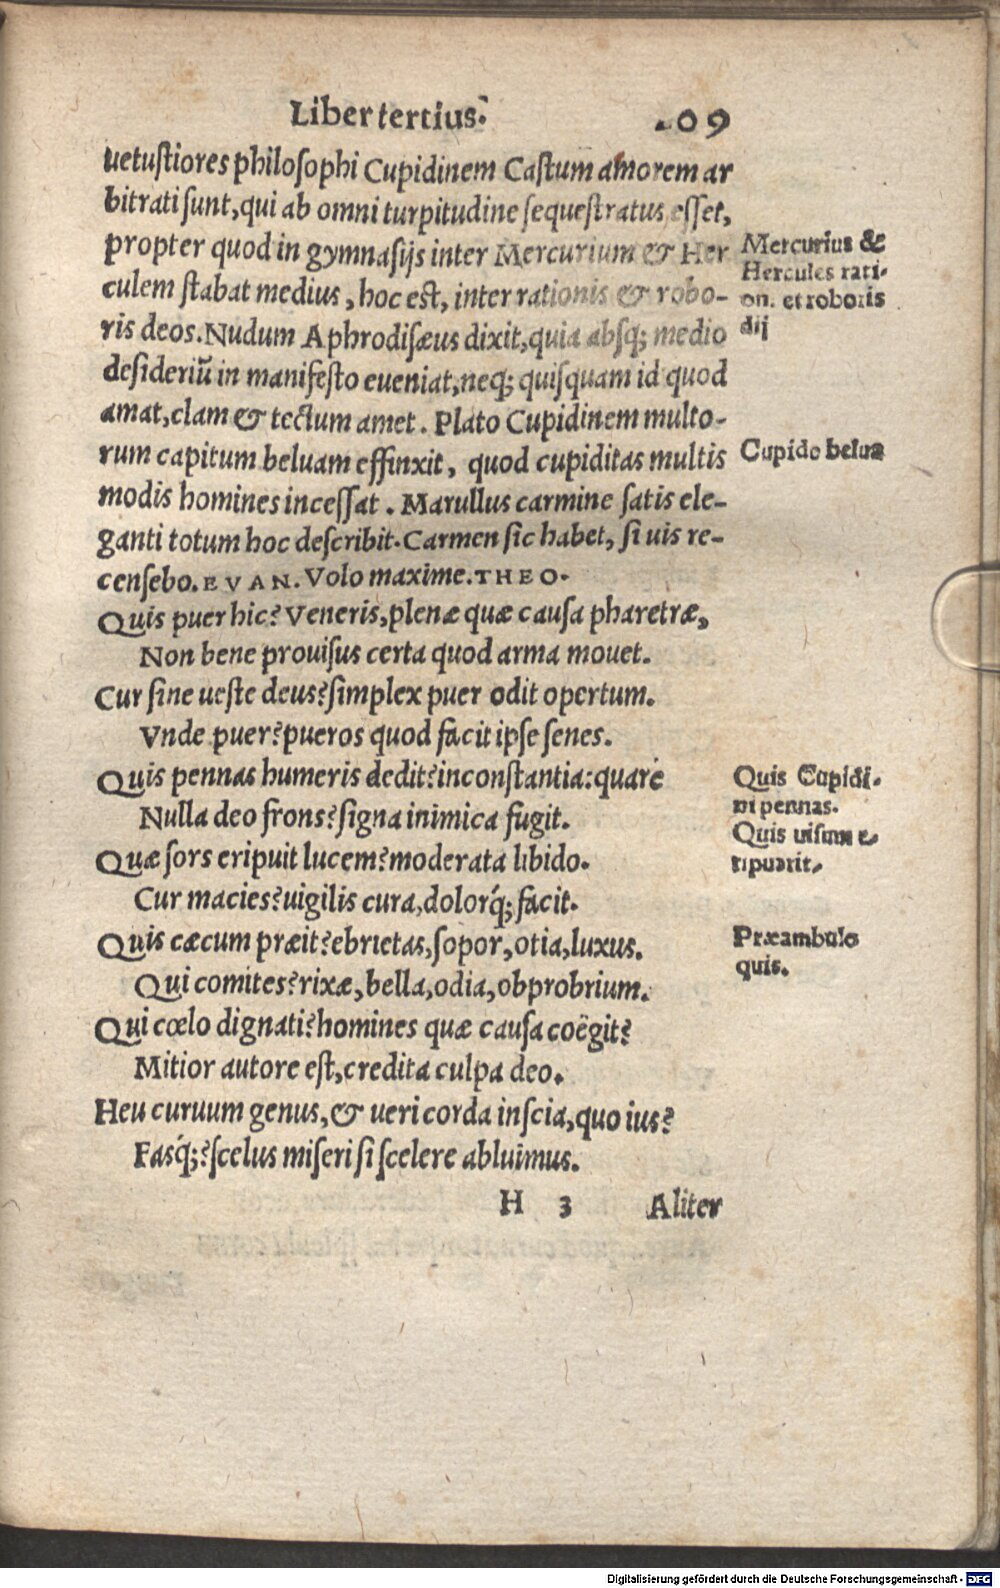 Liber tertius. 109
uetuſtiores philoſophi Cupidinem Caſtum amorem ar
bitrati ſunt, qui ab omni turpitudine ſequeſtratus eſſet,
propter quod in gymnaſijs inter Mercurium & Her
culem ſtabat medius, hoc est, inter rationis & robo-
ris deos. Nudum Aphrodiſæus dixit, quia abſq; medio
deſideriũ in manifeſto eueniat, neq; quiſquam id quod
amat, clam & tectum amet. Plato Cupidinem multo-
rum capitum beluam effinxit, quod cupiditas multis
modis homines inceſſat. Marullus carmine ſatis ele-
ganti totum hoc deſcribit. Carmen ſic habet, ſi uis re-
cenſebo. EVAN. Volo maxime. THEO.
Quis puer hic? Veneris, plenæ quæ cauſa pharetræ,
Non bene prouiſus certa quod arma mouet.
Cur ſine ueſte deus? ſimplex puer odit opertum.
Vnde puer? pueros quod facit ipſe ſenes.
Quis pennas humeris dedit? inconſtantia: quare
Nulla deo frons? ſigna inimica fugit.
Quæ ſors eripuit lucem? moderata libido.
Cur macies? uigilis cura, dolorq́; facit.
Quis cæcum præit? ebrietas, ſopor, otia, luxus.
Qui comites? rixæ, bella, odia, obprobrium.
Qui cœlo dignati? homines quæ cauſa coëgit?
Mitior autore est, credita culpa deo.
Heu curuum genus, & ueri corda inſcia, quo ius?
Fasq́;? ſcelus miſeri ſi ſcelere abluimus.
H 3 Aliter
Mercurius &
Hercules rati-
on. et roboris
dij
Cupido belua
Quis Cupidi-
ni pennas.
Quis uiſum e-
ripuerit.
Præambulo
quis.
Digitalisierung gefördert durch die Deutsche Forschungsgemeinschaft - DFG